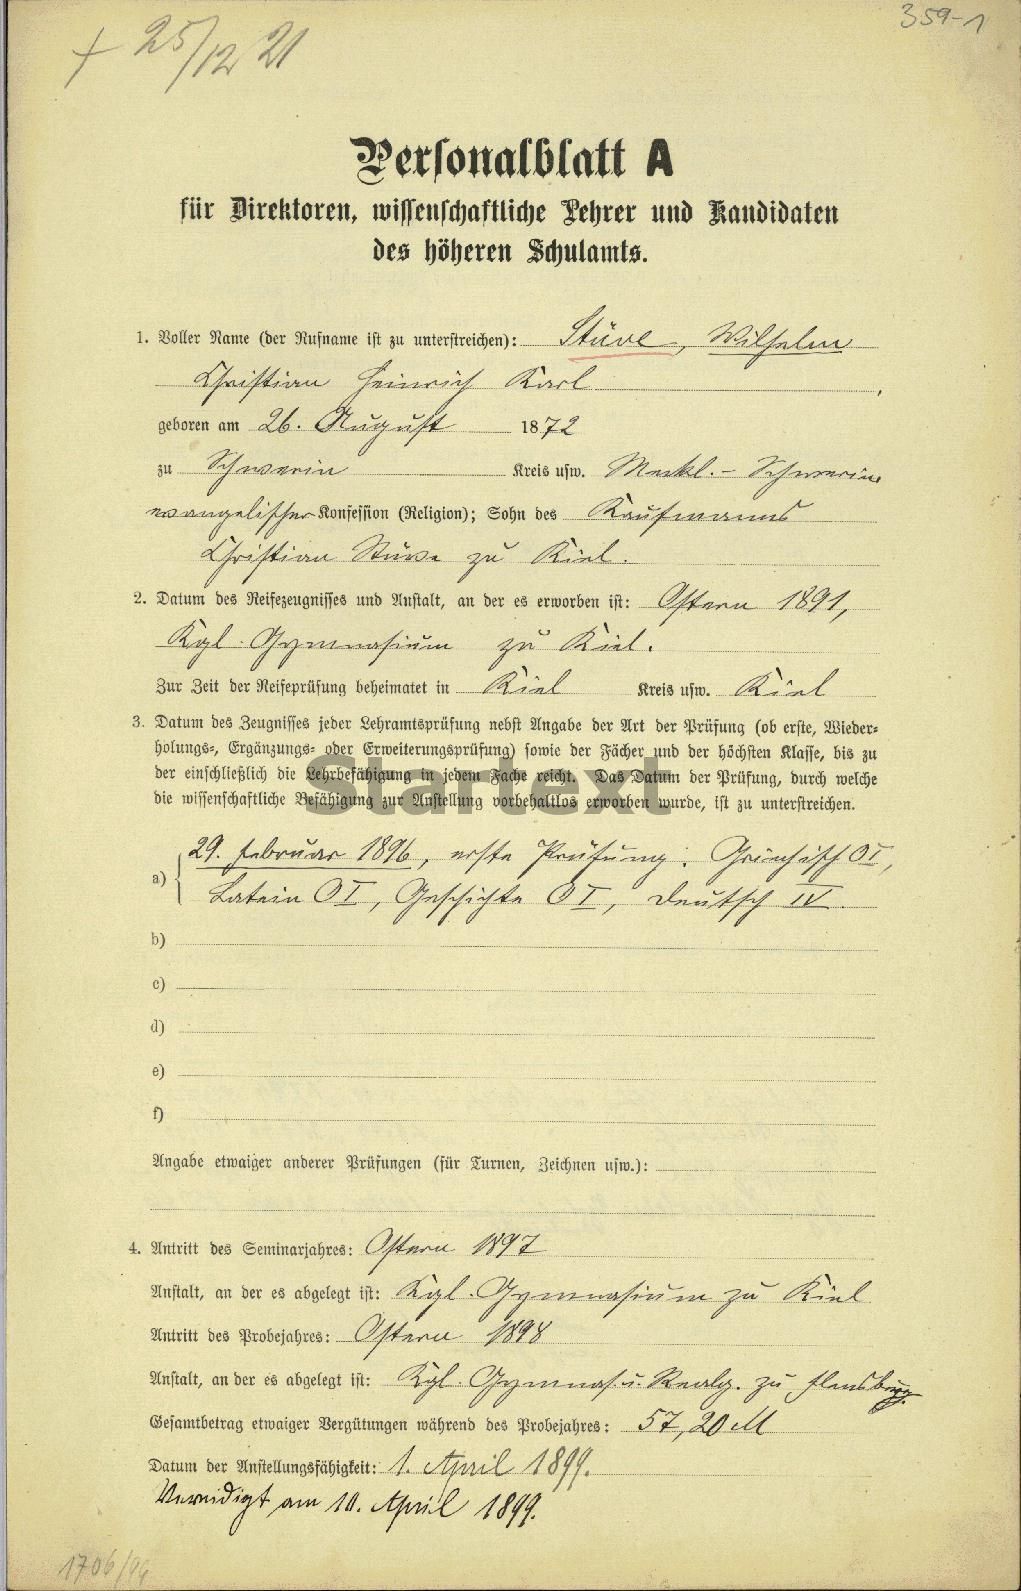 359-1
+ 25/12 21
Personalblatt A
für Direktoren, wissenschaftliche Lehrer und Kandidaten
des höheren Schulamts.
1. Voller Name (der Rufname ist zu unterstreichen): Stüve, Wilhelm
Christian Heinrich Karl
geboren am 26. August 1872
zu Schwerin Kreis usw. Meckl.-Schwerin
evangelischer Konfession (Religion); Sohn des Kaufmanns
Christian Stüve zu Kiel.
2. Datum des Reifezeugnisses und Anstalt, an der es erworben ist: Ostern 1891,
Kgl. Gymnasium zu Kiel.
Zur Zeit der Reifeprüfung beheimatet in Kiel Kreis usw. Kiel
3. Datum des Zeugnisses jeder Lehramtsprüfung nebst Angabe der Art der Prüfung (ob erste, Wieder-
holungs-, Ergänzungs- oder Erweiterungsprüfung) sowie der Fächer und der höchsten Klasse, bis zu
der einschließlich die Lehrbefähigung in jedem Fache reicht. Das Datum der Prüfung, durch welche
die wissenschaftliche Befähigung zur Anstellung vorbehaltlos erworben wurde, ist zu unterstreichen.
Startext
a) 29. Februar 1896, erste Prüfung: Griechisch OI,
Latein OI, Geschichte OI, Deutsch IV.
b)
c)
d)
e)
f)
Angabe etwaiger anderer Prüfungen (für Turnen, Zeichnen usw.):
4. Antritt des Seminarjahres: Ostern 1897
Anstalt, an der es abgelegt ist: Kgl. Gymnasium zu Kiel
Antritt des Probejahres: Ostern 1898
Anstalt, an der es abgelegt ist: Kgl. Gymnas. u. Realg. zu Flensburg.
Gesamtbetrag etwaiger Vergütungen während des Probejahres: 57,20 M
Datum der Anstellungsfähigkeit: 1. April 1899.
Vereidigt am 10. April 1899.
1706/94